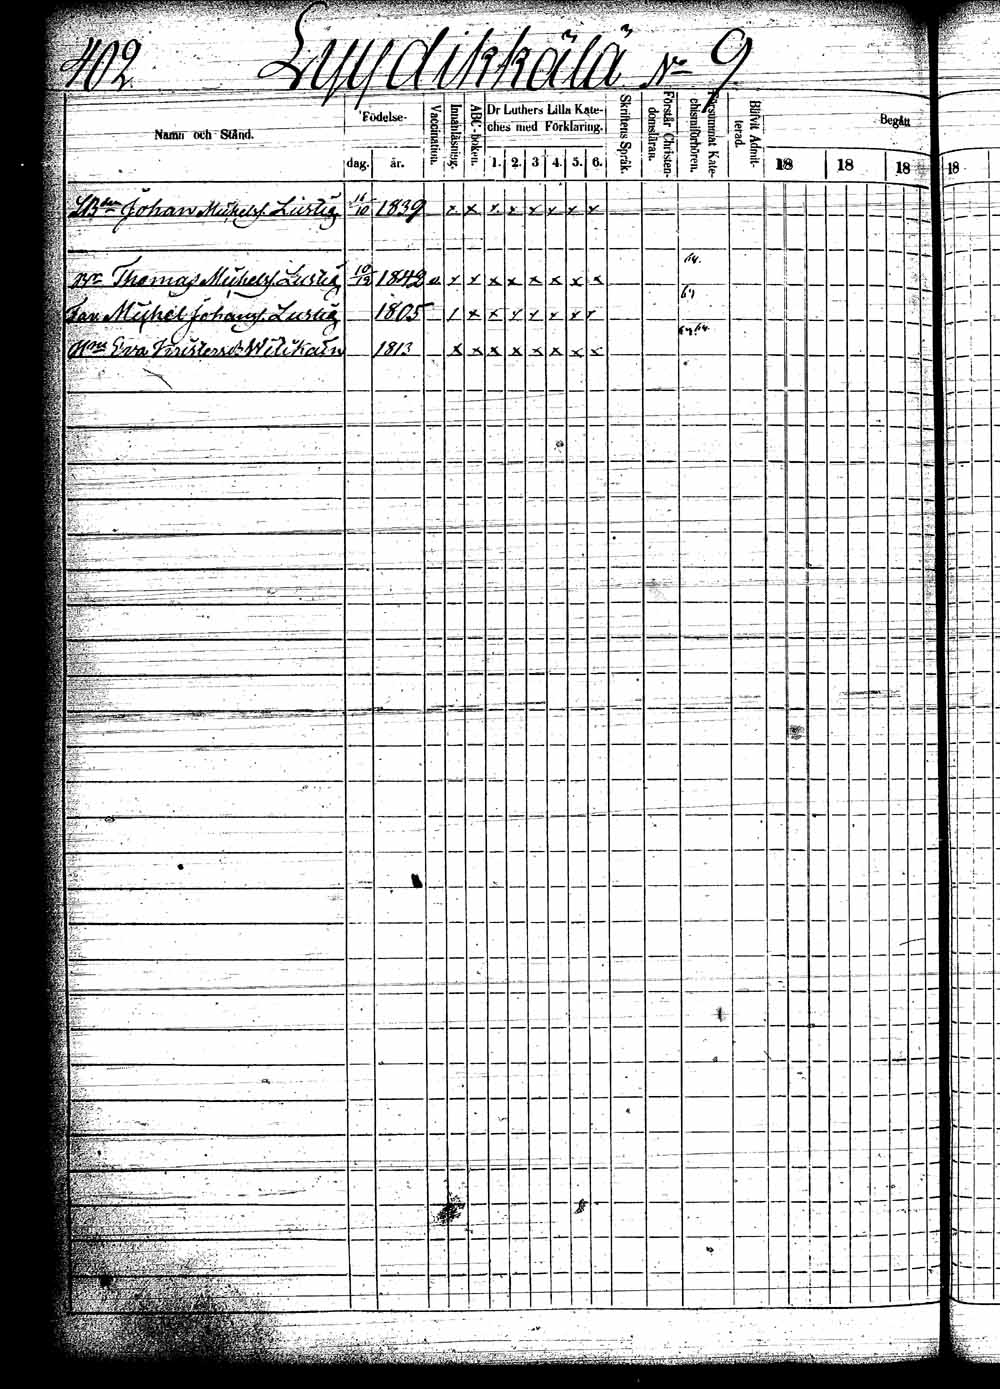 402 Lyydikkälä No 9
Namn och Stånd.
Födelse-
dag. år.
Vaccination.
Innanläsning.
ABC-boken.
Dr Luthers Lilla Kate-
ches med Förklaring.
1. 2. 3 4. 5. 6.
Skriftens Språk.
Förstår Christen-
domsläran.
Försummat Kate-
chismiförhören.
Blifvit Admit-
terad.
Begått
18 18 18 18
Johan Michelsf. Lustig 11/10 1839 x x x x x x x x
Br Thomas Michelsf. Lustig 10/12 1842 v. x x x x x x x x 64.
Far Michel Johansf. Lustig 1805 / x x x x x x x 64
Eva 1813 x x x x x x x x